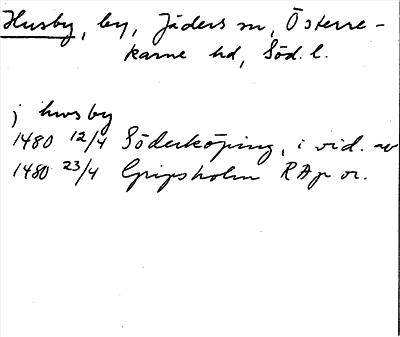 Husby, by, Jäders sn, Österre-
karne hd, Söd. l.
j husby
1480 12/4 Söderköping, i vid. av
1480 23/4 Gripsholm RAp or.